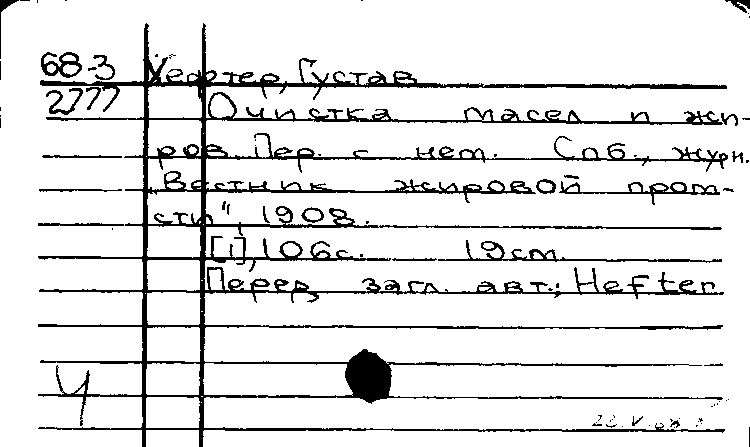 68-3 Хефтер, Густав
2777 Очистка масел и жи-
ров. Пер. с нем. Спб., журн.
„Вестник жировой пром-
сти", 1908.
[1], 106с. 19см.
Перед загл. авт.: Hefter
Ч